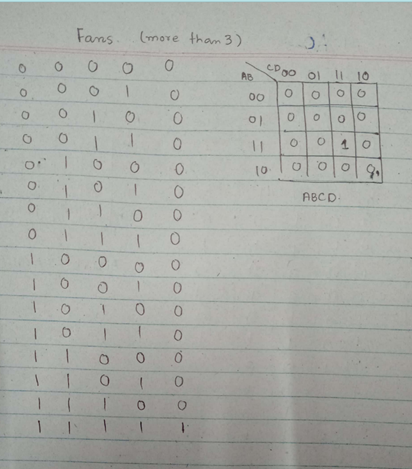 Fans. (more than 3)
0 0 0 0 0
0 0 0 1 0
0 0 1 0 0
0 0 1 1 0
0 1 0 0 0
0 1 0 1 0
0 1 1 0 0
0 1 1 1 0
1 0 0 0 0
1 0 0 1 0
1 0 1 0 0
1 0 1 1 0
1 1 0 0 0
1 1 0 1 0
1 1 1 0 0
1 1 1 1 1
AB CD 00 01 11 10
00 0 0 0 0
01 0 0 0 0
11 0 0 1 0
10 0 0 0
ABCD.